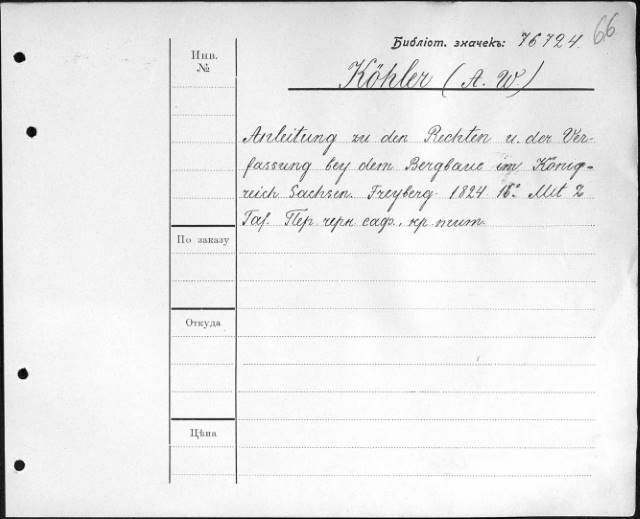 66
Библіот. значекъ: 76724
Инв.
№
Köhler (A. W)
Anleitung zu den Rechten u. der Ver-
fassung bey dem Bergbaue im König-
reich Sachsen. Freyberg. 1824 16° Mit 2
Taf. Пер. черн. саф., кр. тит.
По заказу
Откуда
Цѣна